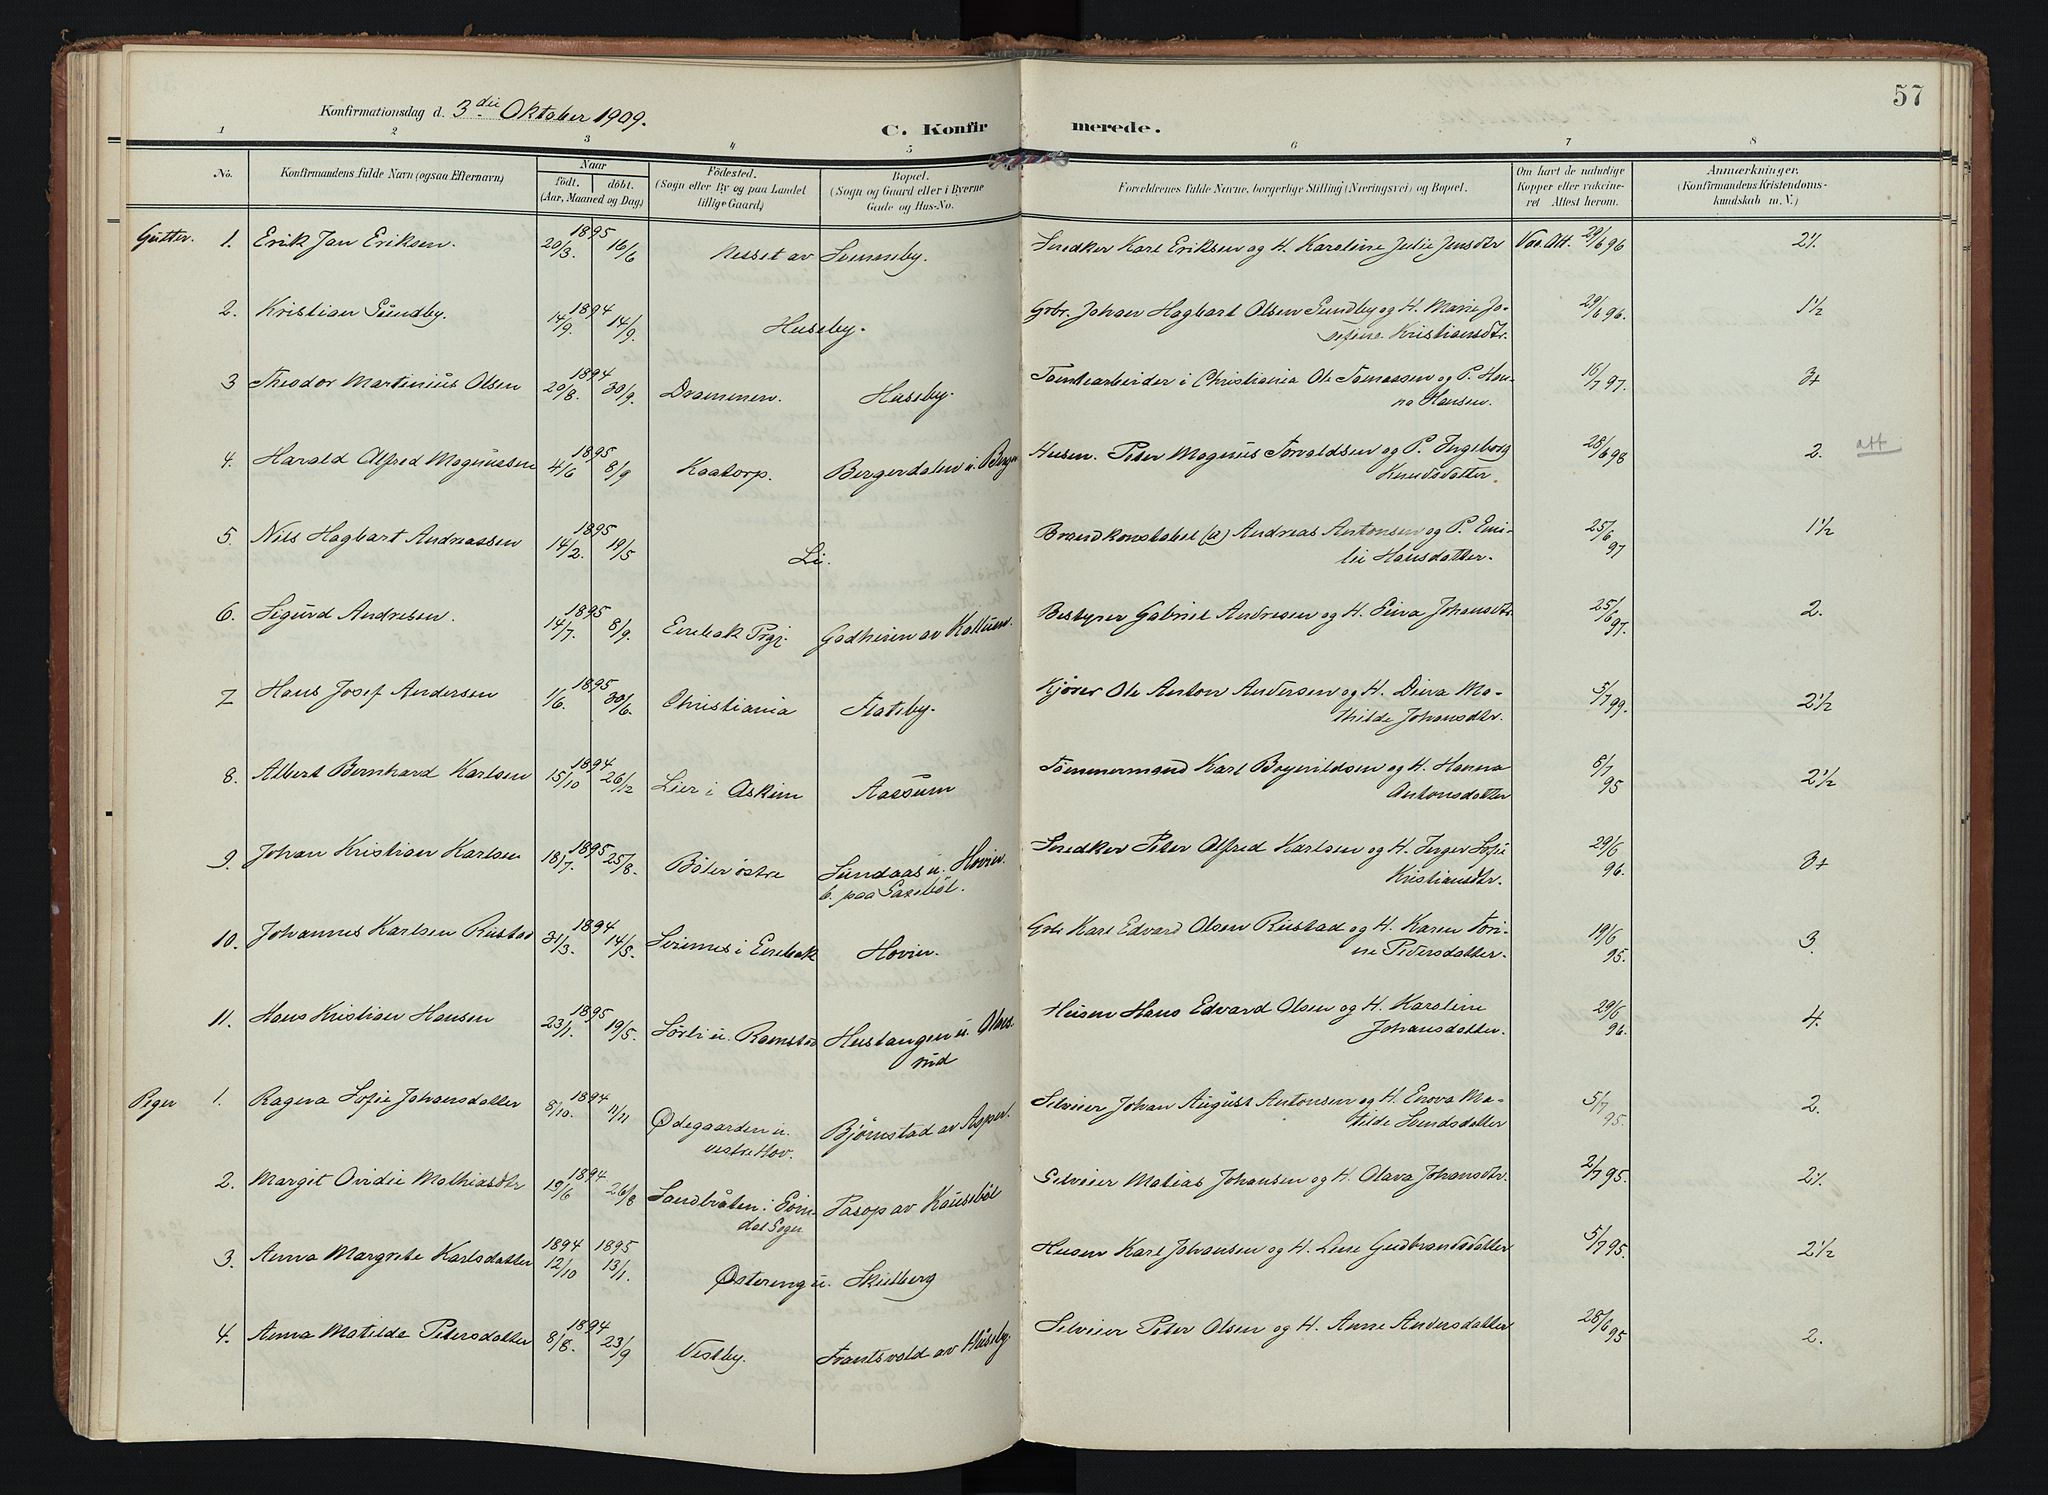 57
Konfirmationsdag d. 3die Oktober 1909.
C. Konfirmerede.
1 2 3 4 5 6 7 8
No. Konfirmandens fulde Navn (ogsaa Efternavn) Naar født. døbt. (Aar, Maaned og Dag) Fødested. (Sogn eller By og paa Landet tillige Gaard) Bopæl. (Sogn og Gaard eller i Byerne Gade og Hus-No. Forældrenes fulde Navne, borgerlige Stilling (Næringsvei) og Bopæl. Om havt de naturlige Kopper eller vakcineret Attest herom. Anmærkninger. (Konfirmandens Kristendomskundskab m. V.)
Gutter. 1. Erik Jan Eriksen. 1895 20/3. 16/6 Nesset av Sunneby. Snedker Karl Eriksen og H. Karoline Julie Jensdtr Vac. Att. 29/6 96
2. Kristian Sundby. 1894 14/9. 14/9. Huseby. Grbr. Johan Hagbart Olsen Sundby og H. Marie Jo-
sefine Kristiansdtr. 29/6 96. 1 1/2
3 Theodor Martinius Olsen 1894 20/8. 30/9. Drammen. Huseby. Tomtearbeider i Christiania Ole Tomassen og P. Han-
na Hansen. 16/7 97. 3+
4. Harald Alfred Magnussen 1895 4/6 8/9 Kaatorp. Bergerdalen u. Berger Husm. Peter Magnus Torvaldsen og P. Ingeborg
Knudsdatter 28/6 98 2. att
5. Nils Hagbart Andreassen 1895 14/2. 19/5 Li. Brandkonstabel (u) Andreas Antonsen og P. Emi-
lie Hansdatter. 25/6 97 1 1/2
6. Sigurd Andresen. 1895 14/7. 8/9. Enebak Prgj. Godheim av Kallum. Bestyrer Gabriel Andresen og H. Eina Johansdtr. 25/6 97. 2.
7 Hans Josef Andersen 1895 1/6. 30/6. Christiania Flateby. Kjører Ole Anton Andersen og H. Dina Ma-
thilde Johansdtr. 5/7 99. 2 1/2
8. Albert Bernhard Karlsen 1894 15/10 26/12 Lier i Askim Aarsum Tømmermand Karl Bøyerildsen og H. Hanna
Antonsdatter 5/7 95 2 1/2
9. Johan Kristian Karlsen 1895 18/7. 25/8. Bøler østre Sundaas u. Hovin.
b. paa Gaasebøl. Snedker Peter Alfred Karlsen og H. Inger Sofie
Kristiansdtr. 29/6 96. 3+
10. Johannes Karlsen Rustad 1894 31/3. 14/5. i Enebak Hovin. Gbr Karl Edvard Olsen Rustad og H. Karen Tori-
ne Pedersdatter. 19/6 95. 3.
11. Hans Kristian Hansen 1895 23/1. 19/5. Sørli u. Ramstad Hustangen u. Olers-
rud Husm Hans Edvard Olsen og H. Karoline
Johansdatter. 29/6 96. 4.
Piger 1. Ragna Sofie Johansdatter 1894 8/10. 11/11 Ødegaarden u.
vestre Hov. Bjørnstad av Asper. Selveier Johan August Antonsen og H. Enova Ma-
tilde Svendsdatter 5/7 95. 2.
2. Margit Ovidie Mathiasdtr 1894 19/6 26/8 Sandbråten i Tom-
dal Sogn Pasop av Kausebøl Selveier Matias Johansen og H. Olava Johansdtr. 2/7 95.
3. Anna Margrete Karlsdatter 1894 12/10 1895 13/1. Østereng u. Skulberg Husm Karl Johansen og H. Line Gudbrandsdatter 5/7 95. 2 1/2
4. Anna Matilde Petersdatter 1894 8/8. 23/9 Vestby. Frantsvold av Huseby. Selveier Peter Olsen og H. Anne Andersdatter 28/6 95 2.